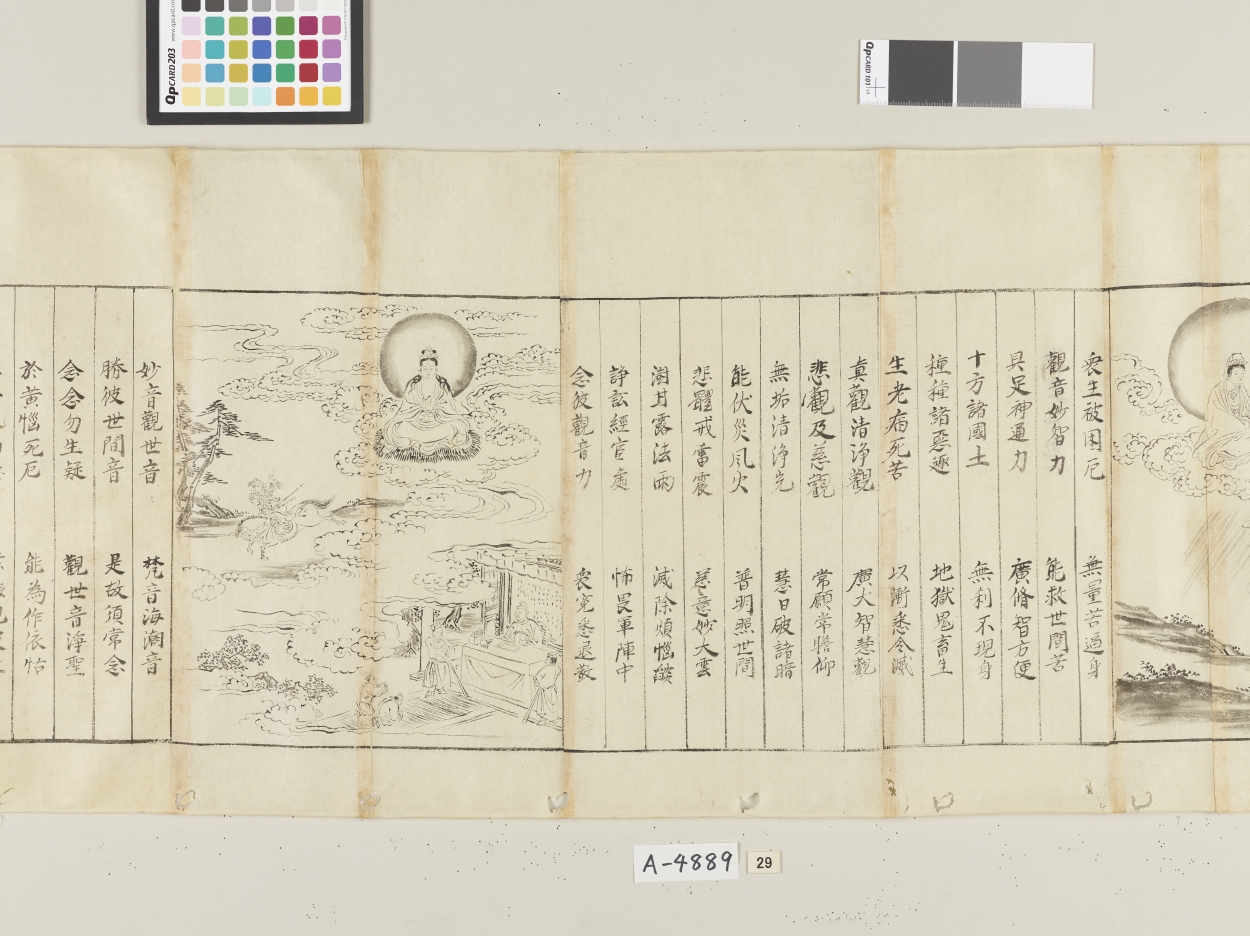 QpCARD 203
QpCARD 101
衆生被困厄 無量苦逼身
觀音妙智力 能救世間苦
具足神通力 廣脩智方便
十方諸國土 無刹不現身
種種諸惡趣 地獄鬼畜生
生老病死苦 以漸悉令滅
真觀清淨觀 廣大智慧觀
悲觀及慈觀 常願常瞻仰
無垢清淨光 慧日破諸暗
能伏災風火 普明照世間
悲體戒雷震 慈意妙大雲
澍甘露法雨 滅除煩惱
諍訟經官處 怖畏軍陣中
念彼觀音力 衆怨悉退散
妙音觀世音 梵音海潮音
勝彼世間音 是故須常念
念念勿生疑 觀世音淨聖
於黄惱死厄 能為作依怙
A-4889
29